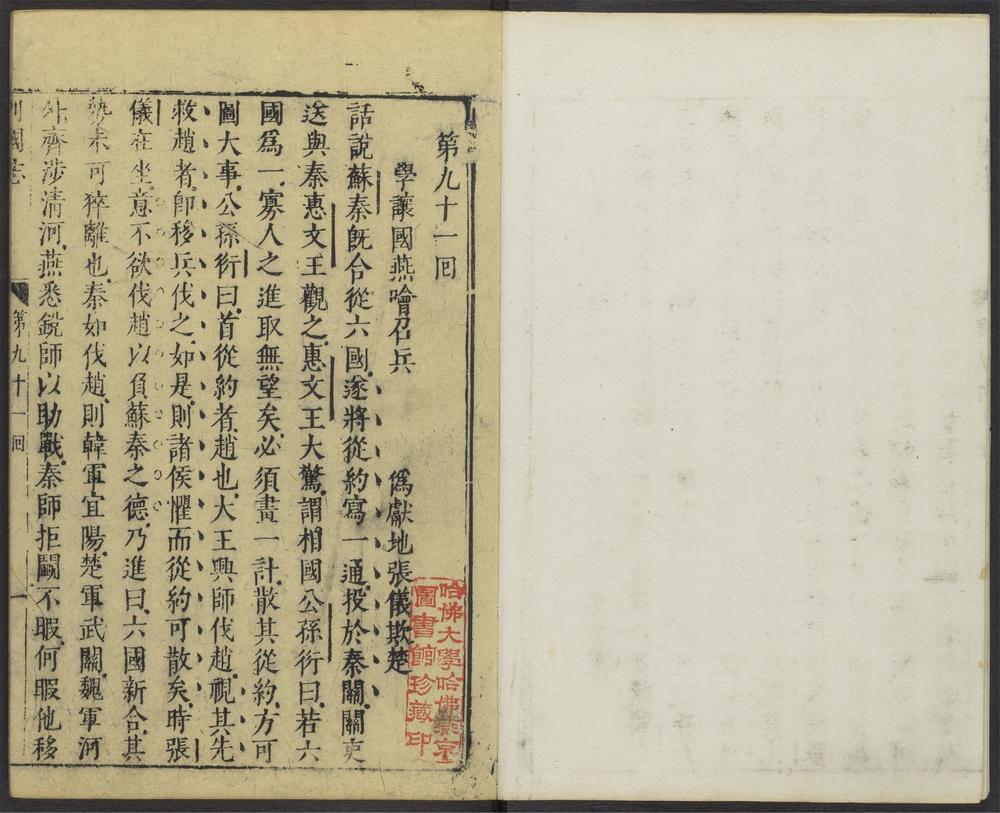 第九十一回
學讓國燕噲召兵　僞獻地張儀欺楚
話說蘇秦旣合從六國遂將從約寫一通投於秦關關吏
送與秦惠文王觀之惠文王大驚謂相國公孫衍曰若六
國爲一寡人之進取無望矣必須畫一計散其從約方可
圖大事公孫衍曰首從約者趙也大王興師伐趙視其先
救趙者卽移兵伐之如是則諸侯懼而從約可散矣時張
儀在坐意不欲伐趙以負蘇秦之德乃進曰六國新合其
勢未可猝離也秦如伐趙則韓軍宜陽楚軍武關魏軍河
外齊涉清河燕悉銳師以助戰秦師拒鬭不暇何暇他移
列國志　第九十一回　一
哈佛大學哈佛燕京
圖書館珍藏印